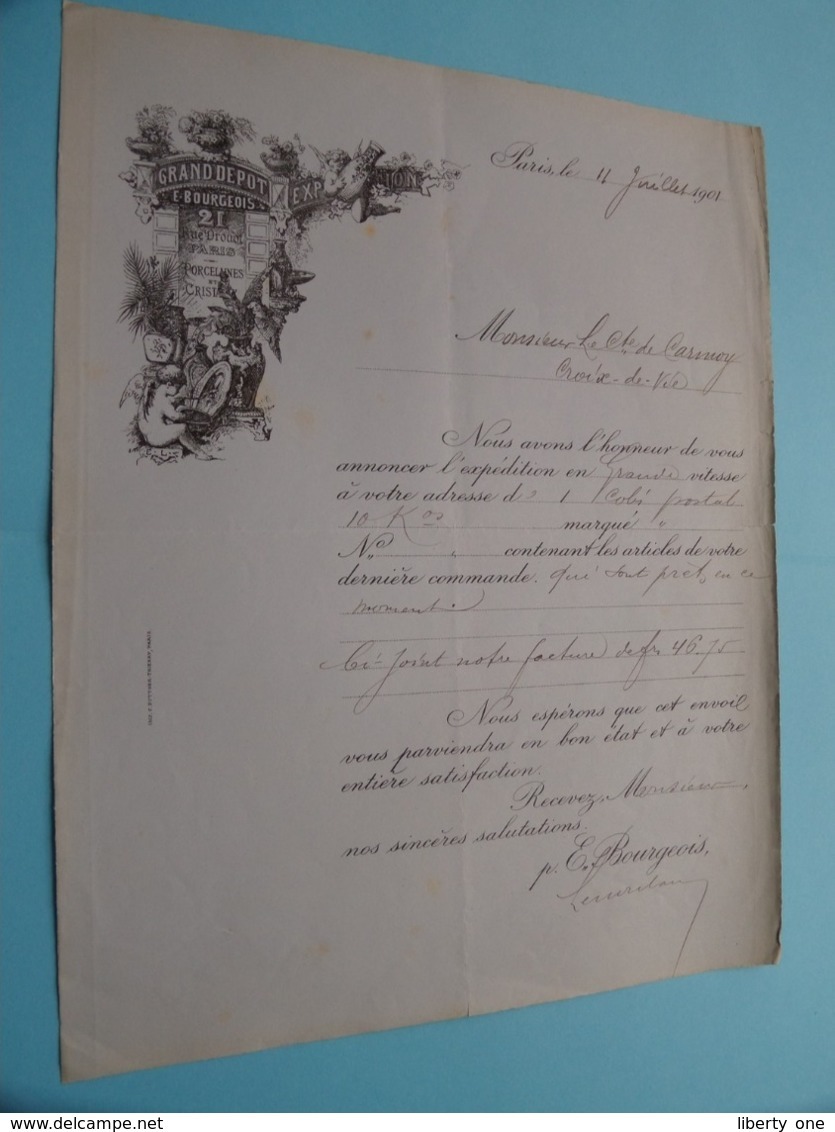 GRAND DEPOT
E. BOURGEOIS
21
Rue Drouot
PARIS
PORCELAINES
ET
CRISTAUX
Paris, le 11 Juillet 1901
Monsieur Le Cte de Carmoy
Croix-de-Vie
Nous avons l'honneur de vous
annoncer l'expédition en Grande vitesse
à votre adresse d 1 Colis postal
10 Kos marqué "
No " contenant les articles de votre
dernière commande. qui sont prêts en ce
moment.
Ci-Joint notre facture de fr 46.75
Nous espérons que cet envoi
vous parviendra en bon état et à votre
entière satisfaction.
Recevez, Monsieur,
nos sincères salutations.
p. E. Bourgeois,
delcampe.net
liberty one